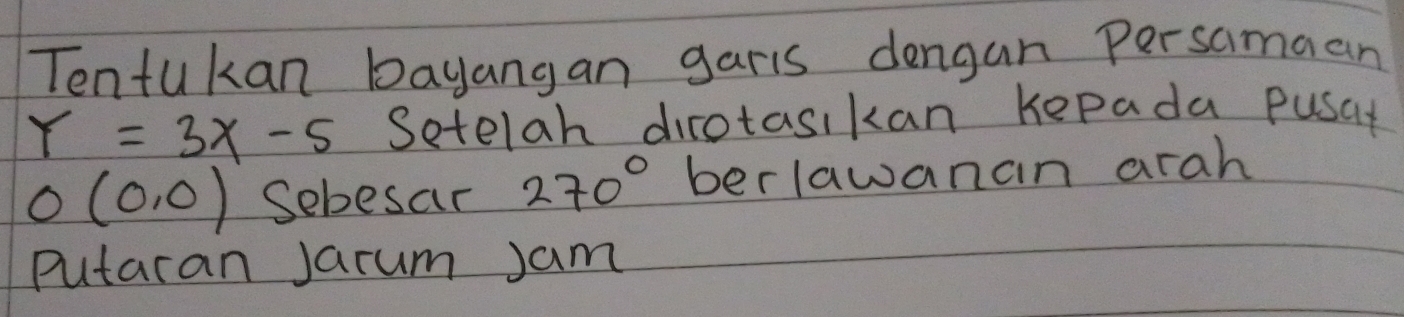 Tentukan bayangan garis dengan Persamaan
Y = 3x - 5 Setelah dirotasikan kepada pusat
O (0,0) Sebesar 270° berlawanan arah
Putaran Jarum Jam